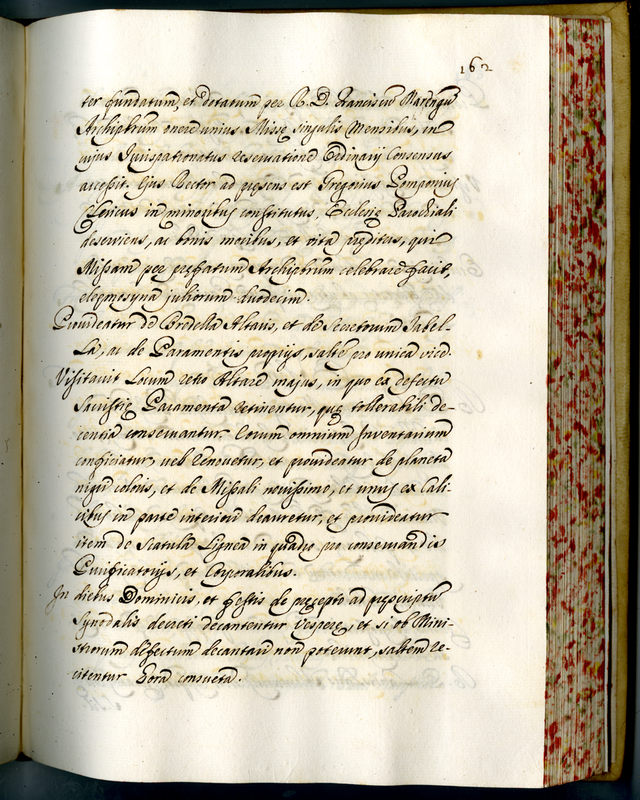 162
ter fundatum, et dotatum per R. D. Franciscũ Marengũ
Archipbrum onere unius Missę singulis Mensibus, in
cujus Jurispatronatus reservatione Ordinarij Consensus
accessit. Ejus Rector ad pręsens est Gregorius Pomponius
Clericus in minoribus constitutus, Ecclesię Parochiali
deserviens, ac bonis moribus, et vita pręditus, qui
Missam per pręfatum Archipbrum celebrare facit,
elegmosyna juliorum duodecim.
Provideatur de Bredella Altaris, et de Secretorum Tabel-
la, ac de Paramentis proprijs, saltẽ pro unica vice.
Visitavit Locum retro Altare majus, in quo ex defectu
Sacristię Paramenta retinentur, quę tollerabili de-
centia conservantur. Eorum omnium Inventarium
conficiatur, vel renovetur, et provideatur de planeta
nigri coloris, et de Missali novissimo, et unus ex Cali-
cibus in parte interiori deauretur, et provideatur
item de Scatula Lignea in quadro pro conservandis
Purificatorijs, et Corporalibus.
In diebus Dominicis, et festis de pręcepto ad pręscriptũ
Synodalis decreti decantentur Vesperę, et si ob Mini-
strorum defectum decantari non poterunt, saltem re-
citentur hora consueta.